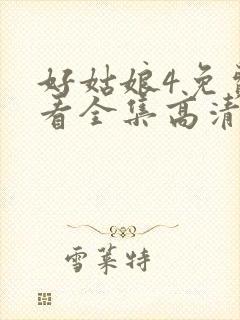 好姑娘4免费
看全集高清
雪莱特